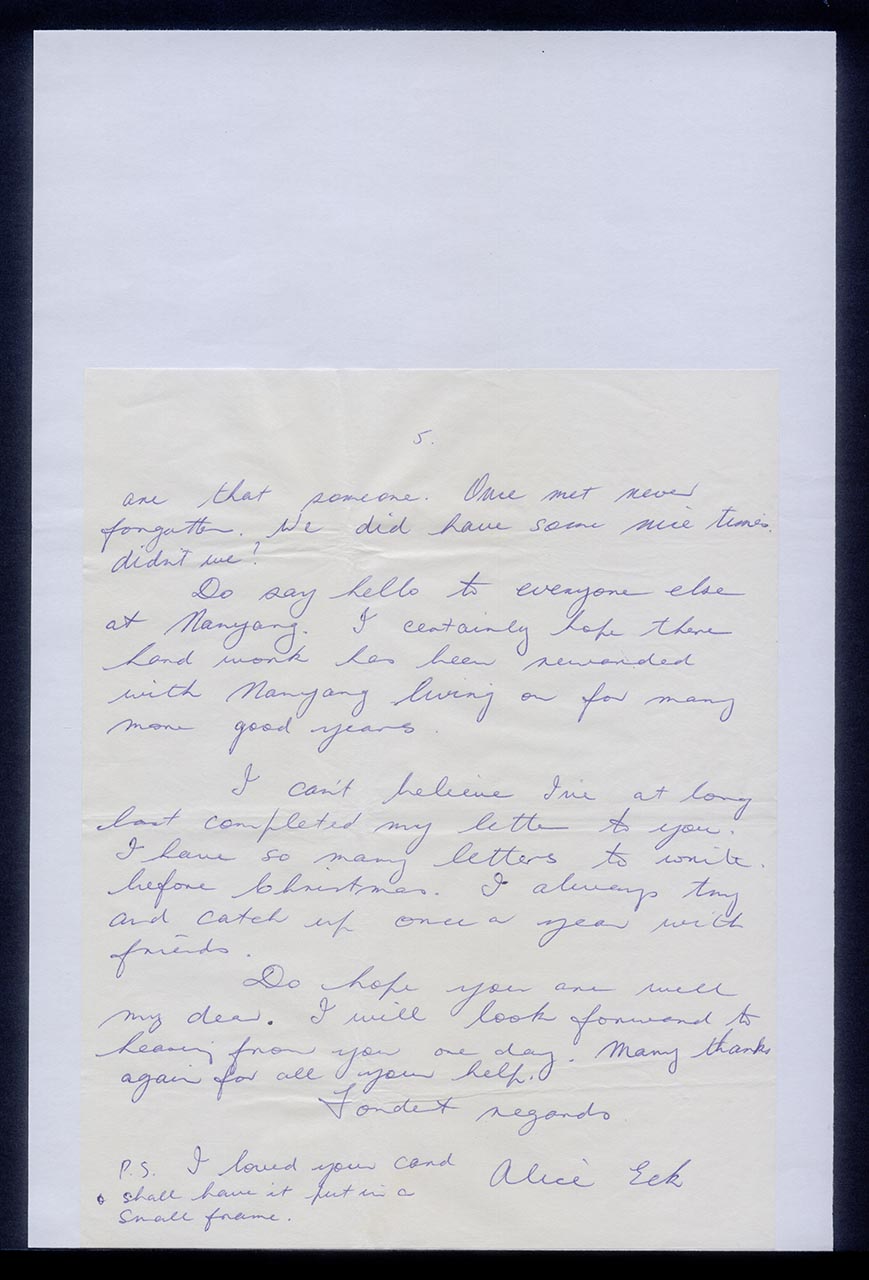 5.
are that someone. Once met never
forgotten. We did have some nice times
didn't we!
Do say hello to everyone else
at Nanyang. I certainly hope there
hard work has been rewarded
with Nanyang living on for many
more good years.
I can't believe I've at long
last completed my letter to you.
I have so many letters to write
before Christmas. I always try
and catch up once a year with
friends.
Do hope you are well
my dear. I will look forward to
hearing from you one day. Many thanks
again for all your help.
Fondest regards
Alice Eck
P.S. I loved your card
shall have it put in a
small frame.